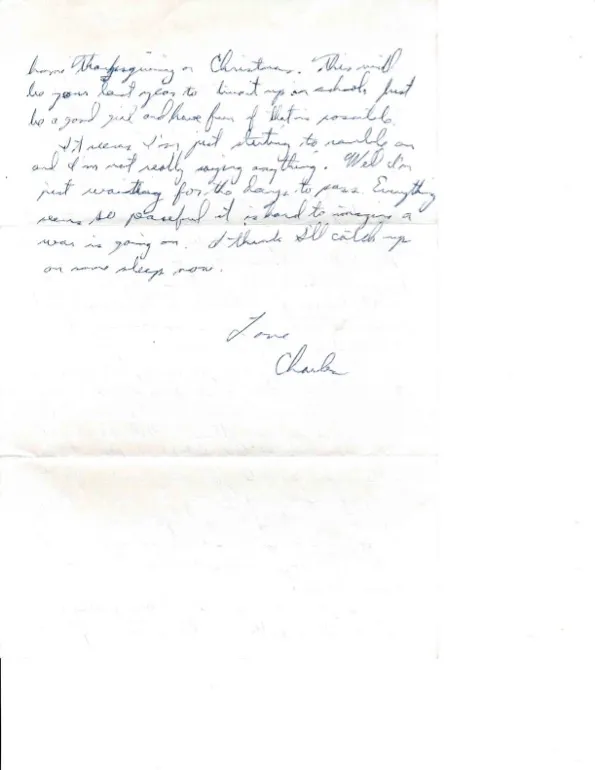 home Thanksgiving or Christmas. This will
be your last year to burnt up on school, just
be a good girl and have fun if that is possible.
It seems I'm just starting to ramble on
and I'm not really saying anything. Well I'm
just waiting for the days to pass. Everything
seems so peaceful it is hard to imagine a
war is going on. I think I'll catch up
on some sleep now.
Love
Charles